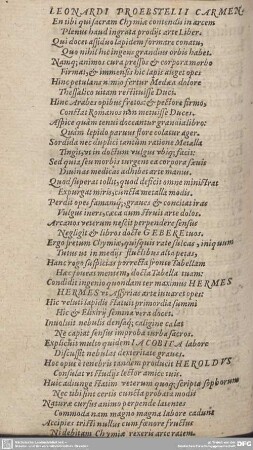 LEONARDI PROEBSTELII CARMEN.
En tibi qui sacram Chymiæ contendis in arcem
Plenus haud ingrata prodijt arte Liber.
Qui docet assiduo lapidem formare conatu,
Quo nihil hoc ingens grandius orbis habet.
Namq; animos cura pressos & corpora morbo
Firmat, & immensas hic lapis auget opes
Hinc petulans nimio fertur Medæa dolore
Thessalico vitam restituisse Duci.
Hinc Arabes opibus fretos & pectore firmo,
Romanos
Aspice quàm tenui doceantur grandia libro:
Quàm lepido paruus flore colatur ager.
Sordida nec duplici tantùm ratione Metalla
Tingit, vt in doctum vulgus vbiq; facit:
Sed quia seu morbis turgent ea corpora sæuis
Diuinas medicas adhibet arte manus.
Quod superat tollit, quod deficit omne ministrat
Expurgat miris, cuncta metalla modis.
Perdit opes famamq; graues & concitat iras
Vulgus iners, cæca cum struit arte dolos.
Arcanos veterum nescit perpendere sensus
Negligit & libros docte GEBERE tuos.
Ergo fretum Chymiæ, quisquis rate sulcas iniquum
Tutus vt in medijs fluctibus alta petas,
Hanc rogo suspicias porrecta fronte Tabellam
Hæc iouat mentem, docta Tabella tuam:
Condidit ingenio quondam ter maximus HERMES
HERMES vt Assyrias arte iuuaret opes:
Hic veluti lapidis statuit primordia summi
Hic & Elixirij semina vera docet.
Inuoluit nebulis densaq; caligine calat
Ne capiat sensus improba turba sacros.
Explicuit multo quidem IACOBITA labore
Discussit nebulas dexteritate graues.
Hoc opus è tenebris tandem producit HEROLDVS
Consulat vt studijs lector amice tuis.
Huic adiunge statim veterum quoq; scripta sophorum
Nec tibi sint certis cuncta probata modis
Naturæ cursus animo perpende latentes
Commoda nam magno magna labore cadunt
Accipies tristi nullus cum fænore fructus
Ni debitam Chymia rexeris arte ratem.